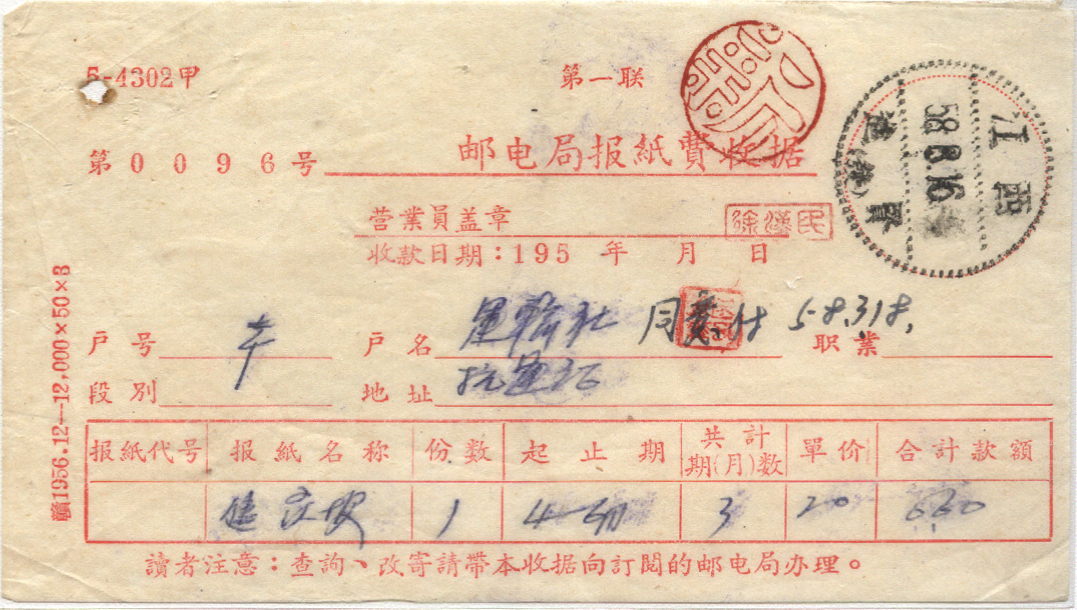 5-4302甲
第一联
江西
58.8.16
第0096号
邮电局报紙費收据
营業員盖章
徐漢民
收款日期：195 年 月 日
户号
户名 運輸社 同意付 58.318.
职業
段别
地址
报紙代号 报紙名称 份数 起止期 共計期(月)数 單价 合計款額
1 3 20
讀者注意：查詢、改寄請带本收据向訂閲的邮电局办理。
贛1956.12—12,000×50×3